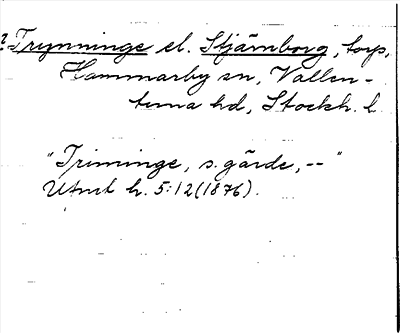 ? Trynninge el. Stjärnborg, torp,
Hammarby sn, Vallen-
tuna hd, Stockh. l.
"Triminge, s. gärde, -- "
Utmt h. 5:12 (1876).